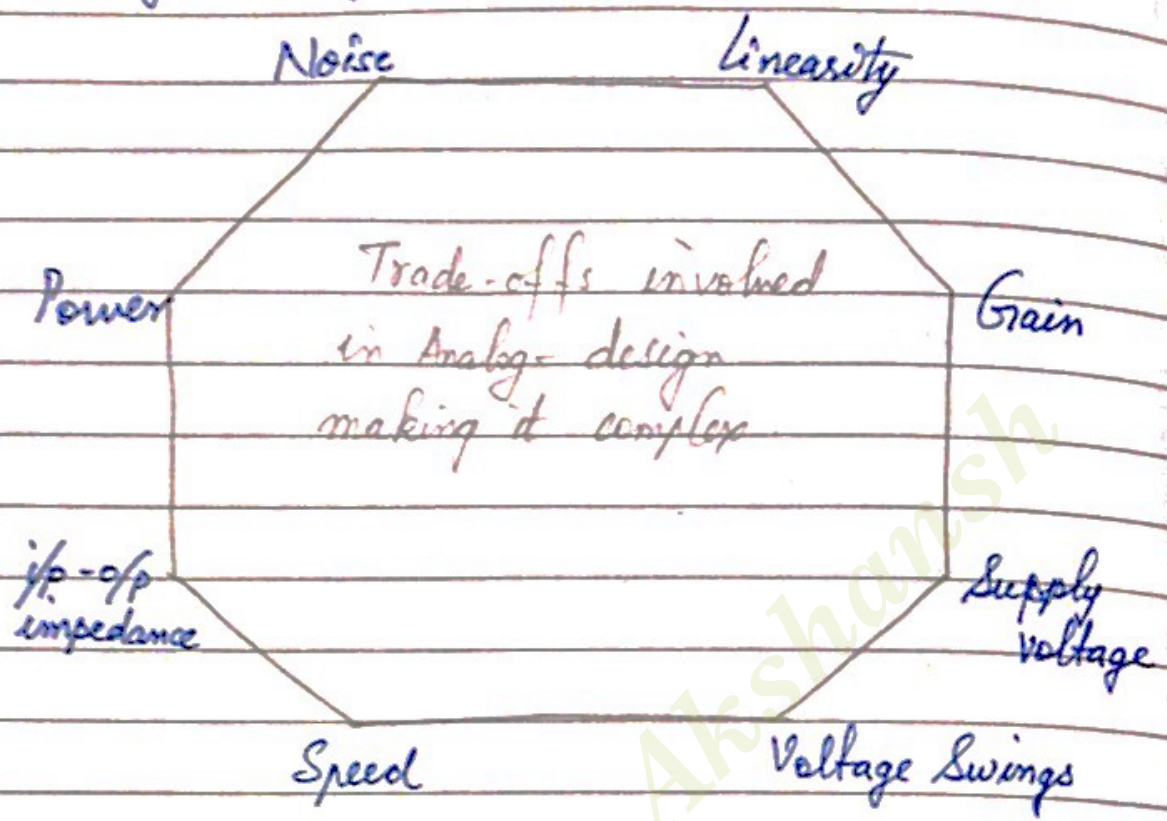 Noise
Linearity
Trade-offs involved
Power
Gain
in Analog- design
making it complex
i/p-o/p
impedance
Supply
voltage
Speed
Voltage Swings
Akshansh